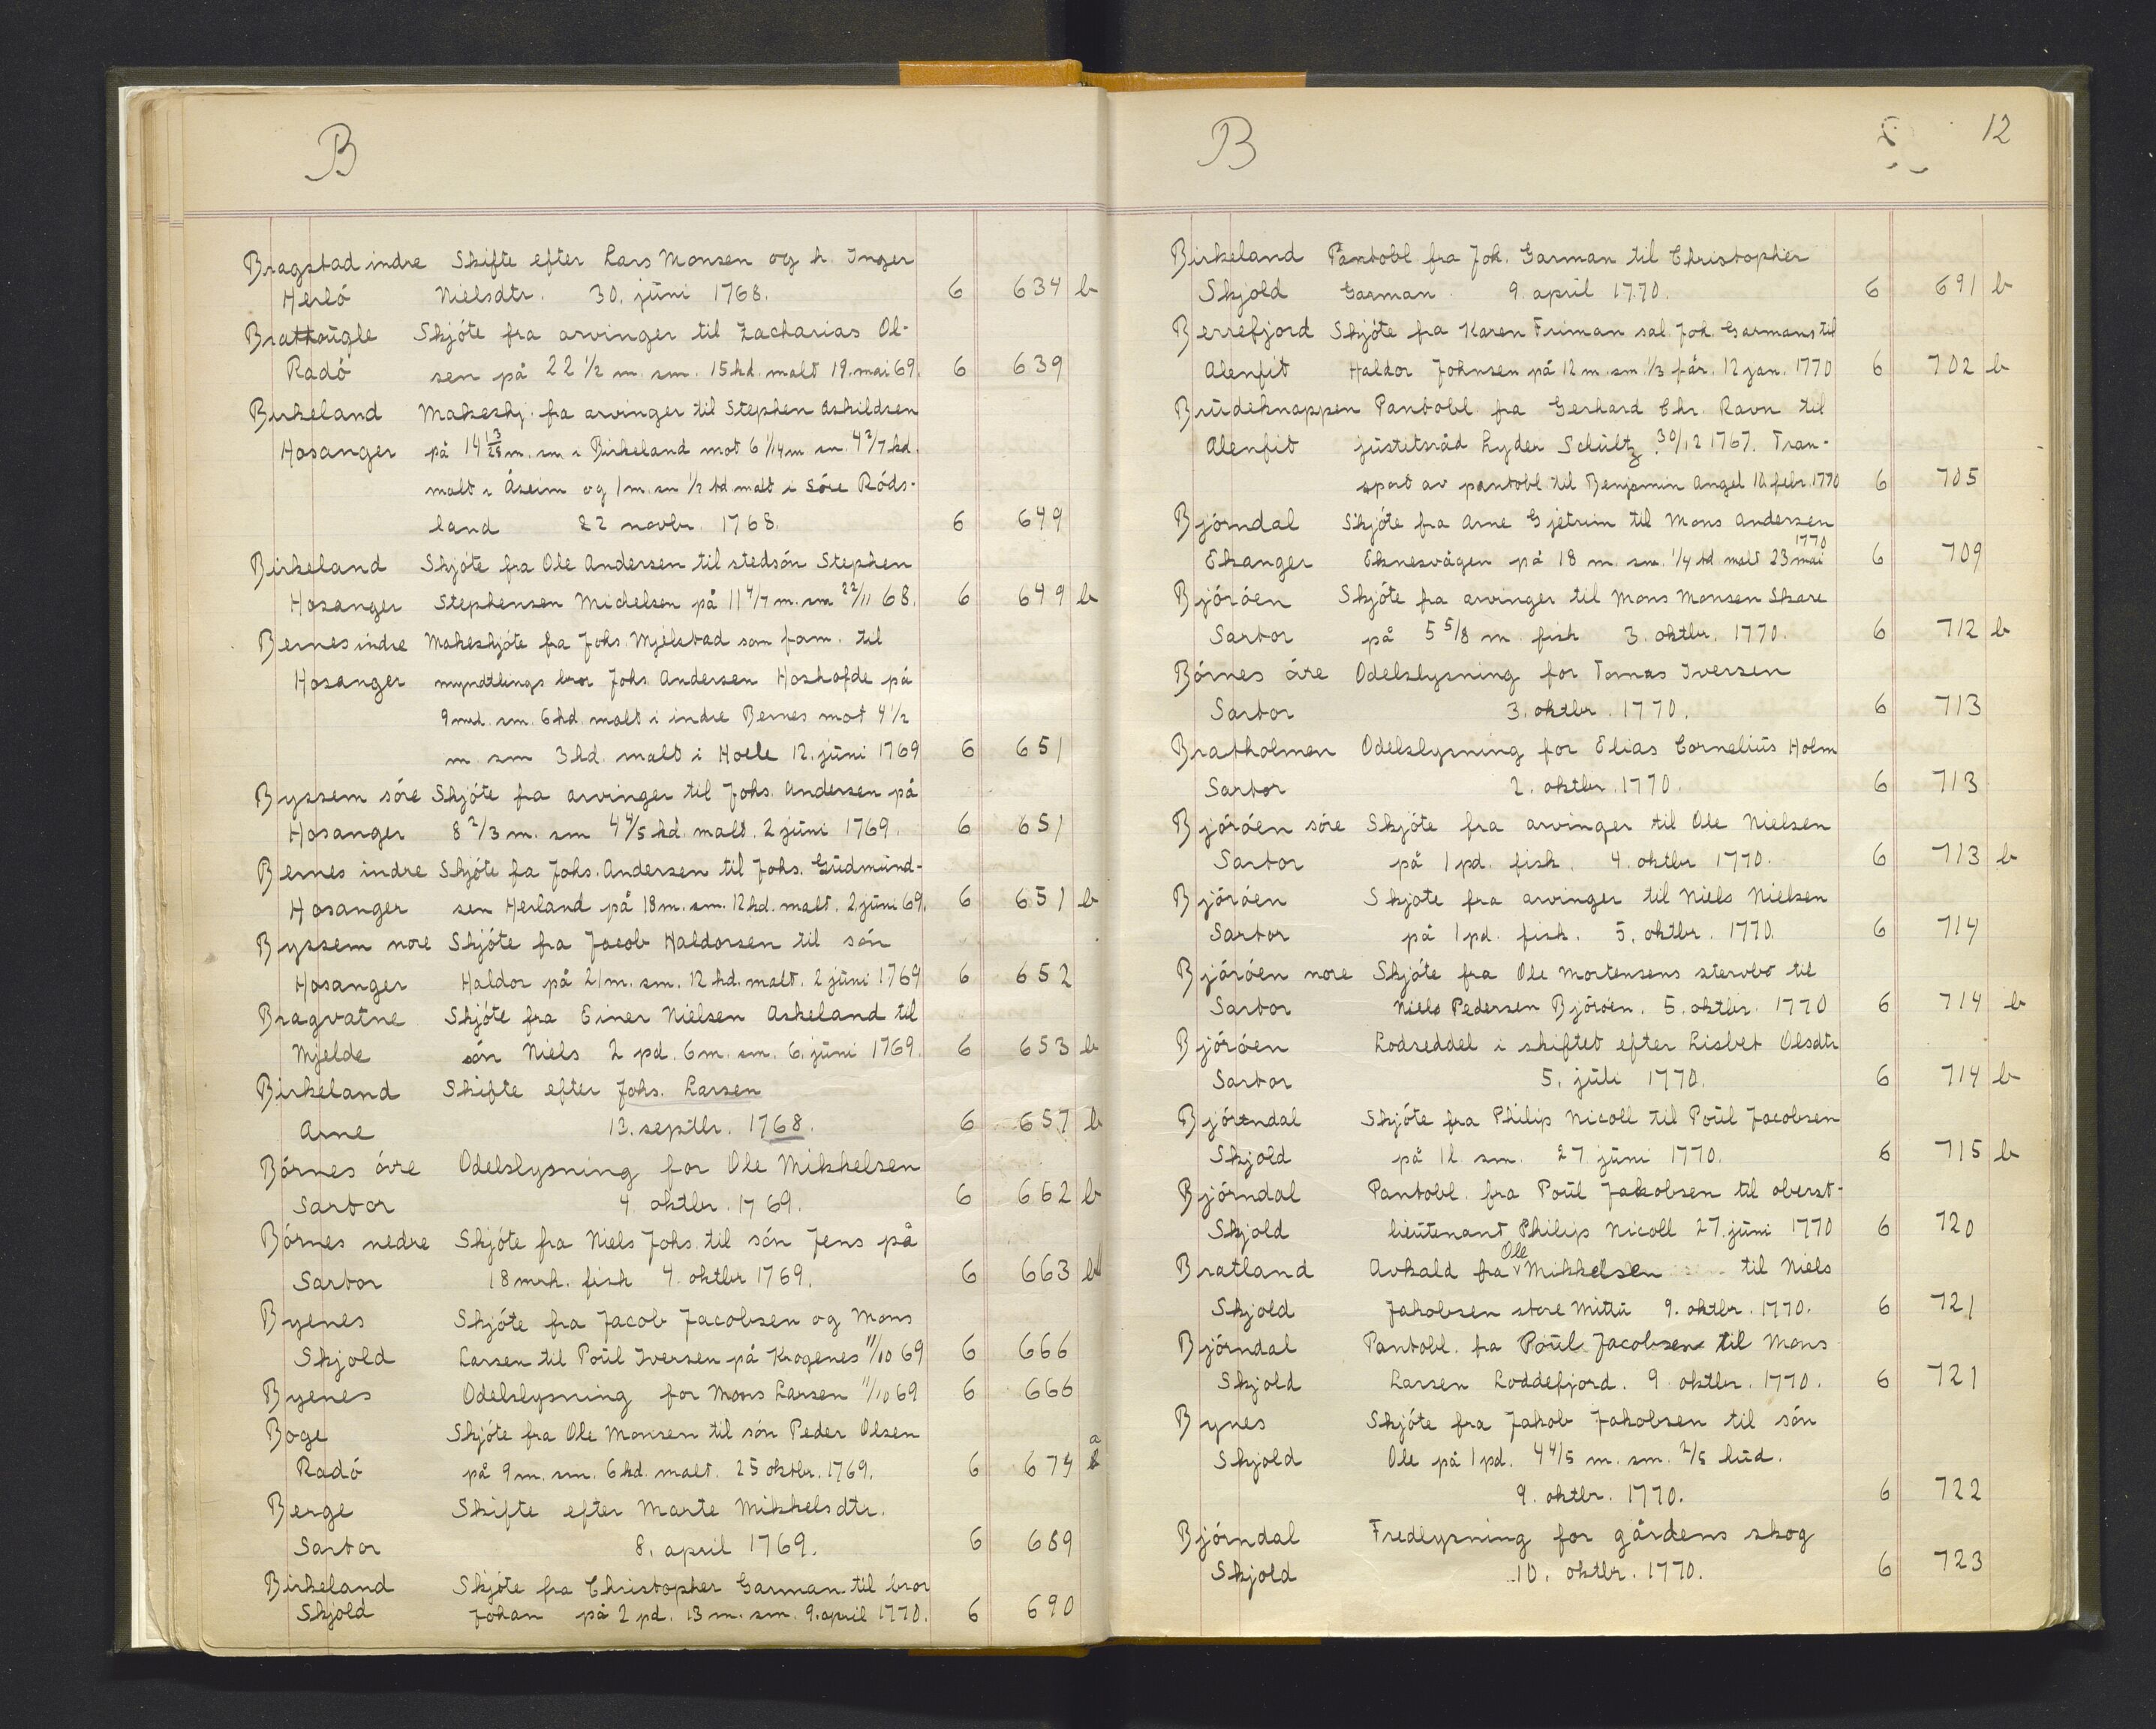 B
Bragstad indre Skifte efter Lars Monsen og h. Inger
Herlö Nielsdtr. 30. juni 1768. 6 634 b
Brattougle Skjöte fra arvinger til Zacharias Ol-
Radö sen på 22 1/2 m. sm. 15 kd. malt 19. mai 69. 6 639
Birkeland Makeskj. fra arvinger til Stephen Askildsen
Hosanger på 14 13/28 m. sm. i Birkeland mot 6 1/14 m sm. 4 2/7 kd.
malt i Åseim og 1 m. sm 1/2 kd malt i Söre Röds-
land 22 novbr. 1768. 6 649
Birkeland Skjöte fra Ole Andersen til stedsön Stephen
Hosanger Stephensen Michelsen på 11 4/7 m. sm 22/11 68. 6 649 b
Bernes indre Makeskjöte fra Johs. Mjelstad som fam. til
Hosanger myndtlings bror Johs Andersen Hoshofde på
9 mrk. sm. 6 kd. malt i indre Bernes mot 4 1/2
m sm 3 kd. malt i Hoele 12. juni 1769 6 651
Byssem söre Skjöte fra arvinger til Johs. Andersen på
Hosanger 8 2/3 m. sm 4 4/5 kd. malt. 2 juni 1769. 6 651
Bernes indre Skjöte fa Johs. Andersen til Johs. Gudmund-
Hosanger sen Herland på 18 m. sm. 12 kd. malt. 2. juni 69. 6 651 b
Byssem nore Skjöte fra Jacob Haldorsen til sön
Hosanger Haldor på 21 m. sm. 12 kd. malt. 2 juni 1769 6 652
Bragvatne Skjöte fra Einer Nielsen Askeland til
Mjelde sön Niels 2 pd. 6 m. sm. 6. juni 1769. 6 653 b
Birkeland Skifte efter Johs. Larsen
Arne 13. septbr. 1768. 6 657 b
Börnes övre Odelslysning for Ole Mikkelsen
Sartor 4 oktbr. 1769. 6 662 b
Börnes nedre Skjöte fra Niels Johs. til sön Jens på
Sartor 18 mrk. fisk 4. oktbr 1769. 6 663 b
Byenes Skjöte fra Jacob Jacobsen og Mons
Skjold Larsen til Poul Iversen på Krogenes 11/10 69 6 666
Byenes Odelslysning for Mons Larsen 11/10 69 6 666
Boge Skjöte fra Ole Monsen til sön Peder Olsen
Radö på 9 m. sm. 6 kd. malt. 25 oktbr. 1769. 6 674 a
Berge Skifte efter Marte Mikkelsdtr.
Sartor 8. april 1769. 6 689
Birkeland Skjöte fra Christopher Garman til bror
Skjold Johan på 2 pd. 13 m. sm. 9. april 1770. 6 690
B 12
Birkeland Pantobl fra Joh. Garman til Christopher
Skjold Garman. 9. april 1770. 6 691 b
Berrefjord Skjöte fra Karen Friman sal. Joh. Garmans til
Alenfit Haldor Johnsen på 12 m. sm 1/3 får. 12 jan. 1770 6 702 b
Brudeknappen Pantobl. fra Gerhard Chr. Ravn til
Alenfit justitsråd Lyder Schultz. 30/12 1767. Tran-
sport av pantobl. til Benjamin Angel 10. febr. 1770 6 705
Björndal Skjöte fra Arne Gjetrim til Mons Andersen
Ekanger Eknesvågen på 18 m. sm. 1/4 kd. malt 23 mai 1770 6 709
Björöen Skjöte fra arvinger til Mons Monsen Skare
Sartor på 5 5/8 m. fisk 3. oktbr. 1770. 6 712 b
Börnes övre Odelslysning for Tomas Iversen
Sartor 3. oktbr. 1770. 6 713
Bratholmen Odelslysning for Elias Cornelius Holm
Sartor 2. oktbr. 1770. 6 713
Björöen söre Skjöte fra arvinger til Ole Nielsen
Sartor på 1 pd. fisk. 4. oktbr 1770. 6 713 b
Björöen Skjöte fra arvinger til Niels Nielsen
Sartor på 1 pd. fisk. 5. oktbr. 1770. 6 714
Björöen nore Skjöte fra Ole Mortensens stervbo til
Sartor Niels Pedersen Björöen. 5. oktbr. 1770 6 714 b
Björöen Lodseddel i skiftet efter Lisbet Olsdtr
Sartor 5. juli 1770. 6 714 b
Björndal Skjöte fra Philip Nicoll til Poul Jacobsen
Skjold på 1 l. sm. 27 juni 1770. 6 715 b
Björndal Pantobl. fra Poul Jakobsen til oberst-
Skjold lieutenant Philip Nicoll 27. juni 1770 6 720
Bratland Avkald fra Ole Mikkelsen til Niels
Skjold Jakobsen store Mittu 9. oktbr. 1770. 6 721
Björndal Pantobl. fra Poul Jacobsen til Mons
Skjold Larsen Loddefjord. 9. oktbr. 1770. 6 721
Bynes Skjöte fra Jakob Jakobsen til sön
Skjold Ole på 1 pd. 4 4/5 m. sm. 2/5 hud.
9. oktbr. 1770. 6 722
Björndal Fredlysning for gårdens skog
Skjold 10. oktbr. 1770. 6 723